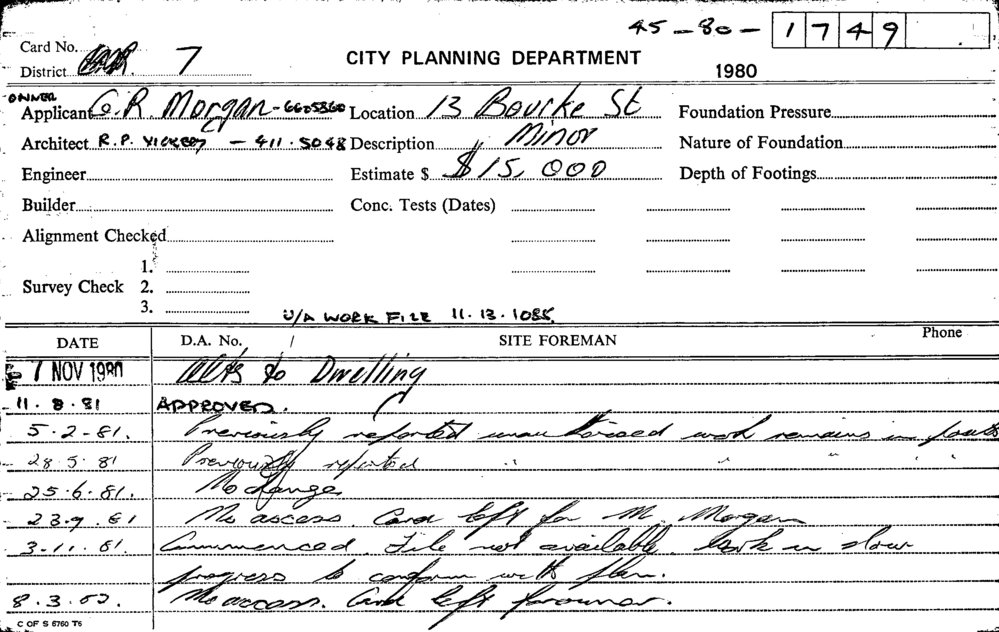 45-80-1749
Card No.
District 7
CITY PLANNING DEPARTMENT
1980
OWNER
Applicant G.R. Morgan - 6605360 Location 13 Bourke St Foundation Pressure
Architect R.P. VICKERY - 411.5048 Description Minor Nature of Foundation
Engineer Estimate $ $15,000 Depth of Footings
Builder Conc. Tests (Dates)
Alignment Checked
1.
Survey Check 2.
3.
U/A WORK FILE 11.13.1085.
DATE D.A. No. SITE FOREMAN Phone
7 NOV 1980 Alts to Dwelling
11.8.81 APPROVED.
5-2-81. Previously reported unauthorised work remains in
28.5.81 Previously reported " " " "
25.6.81. No change
23.9.81 No access. Card left for Mr. Morgan
3.11.81. Commenced. File not available. Work in slow
progress to conform with plan.
8.3.82. No access. Card left for owner.
C OF S 6760 T6